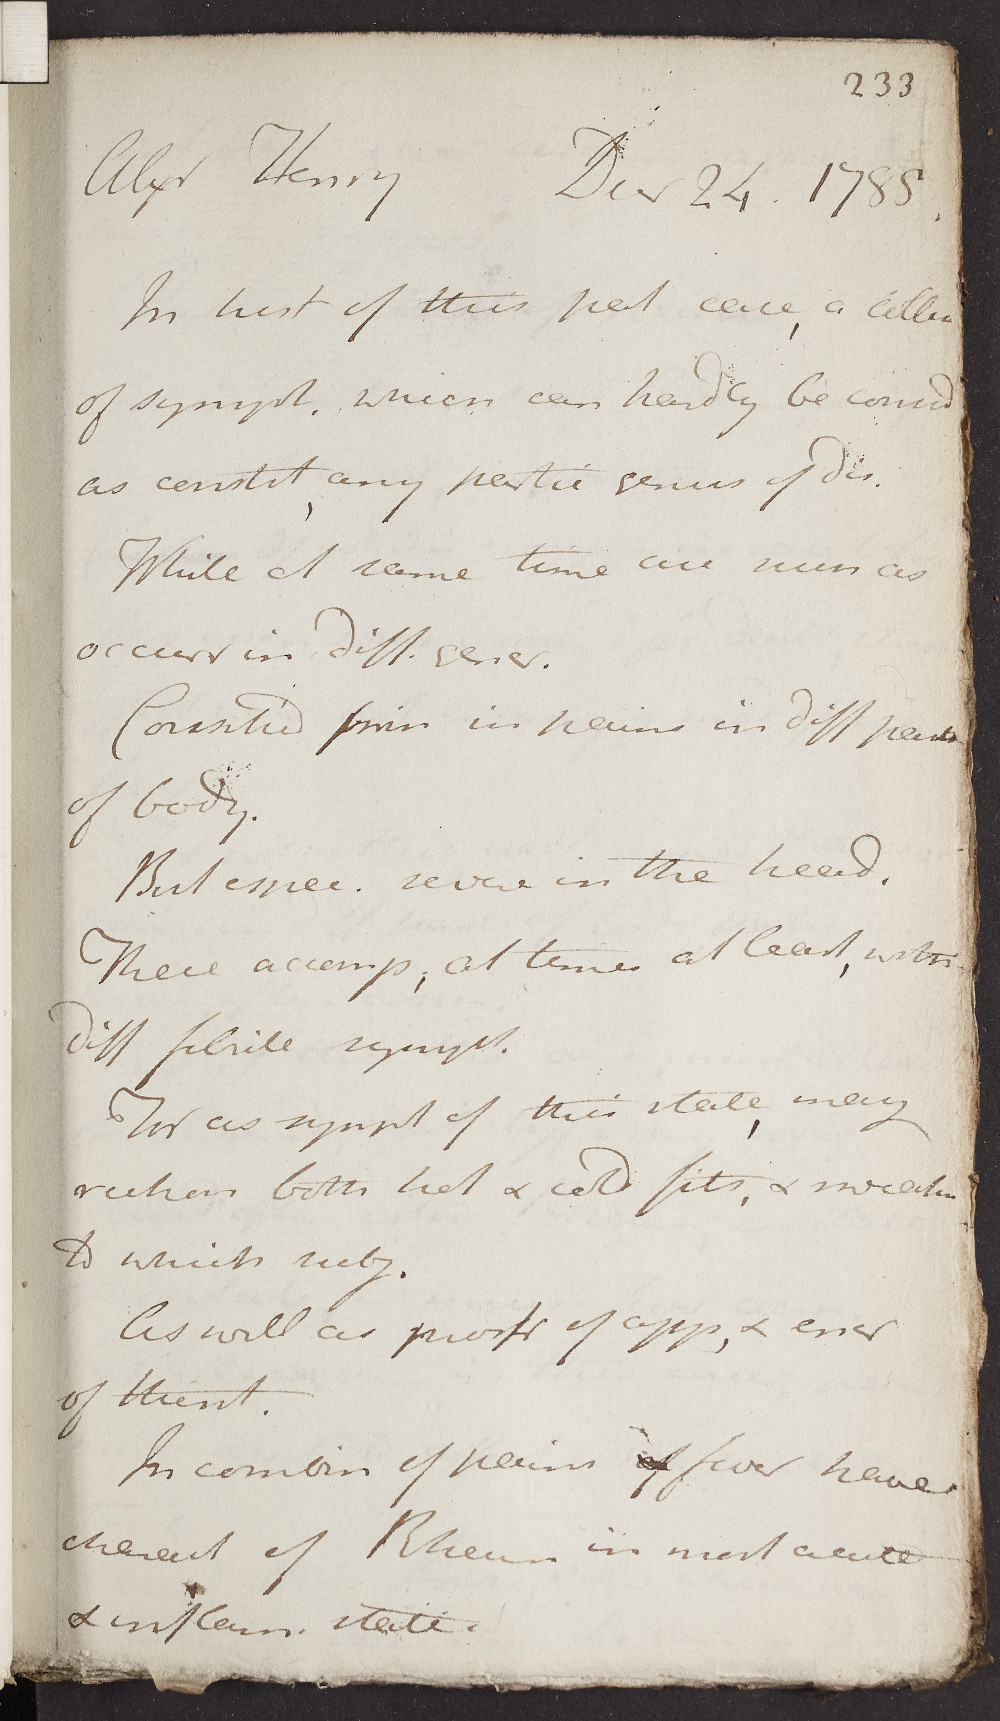 233
Alexr Henry Decr 24. 1785.
In hist of this pat cace, a collec
of sympt. which can hardly be consid
as constit, any partic genus of dis.
While at same time are num as
occurr in diff. gener.
Consisted prin in pains in diff parts
of body.
But espec. severe in the head.
These accomp, at times at least, with
diff febrile sympt.
For as sympt of this state, may
reckon both hot & cold fits, & sweatin
to which subj.
As well as of app, & ener
of thirst.
In combin of pains & fever have
charact of Rheum in most acute
& inflam. state.